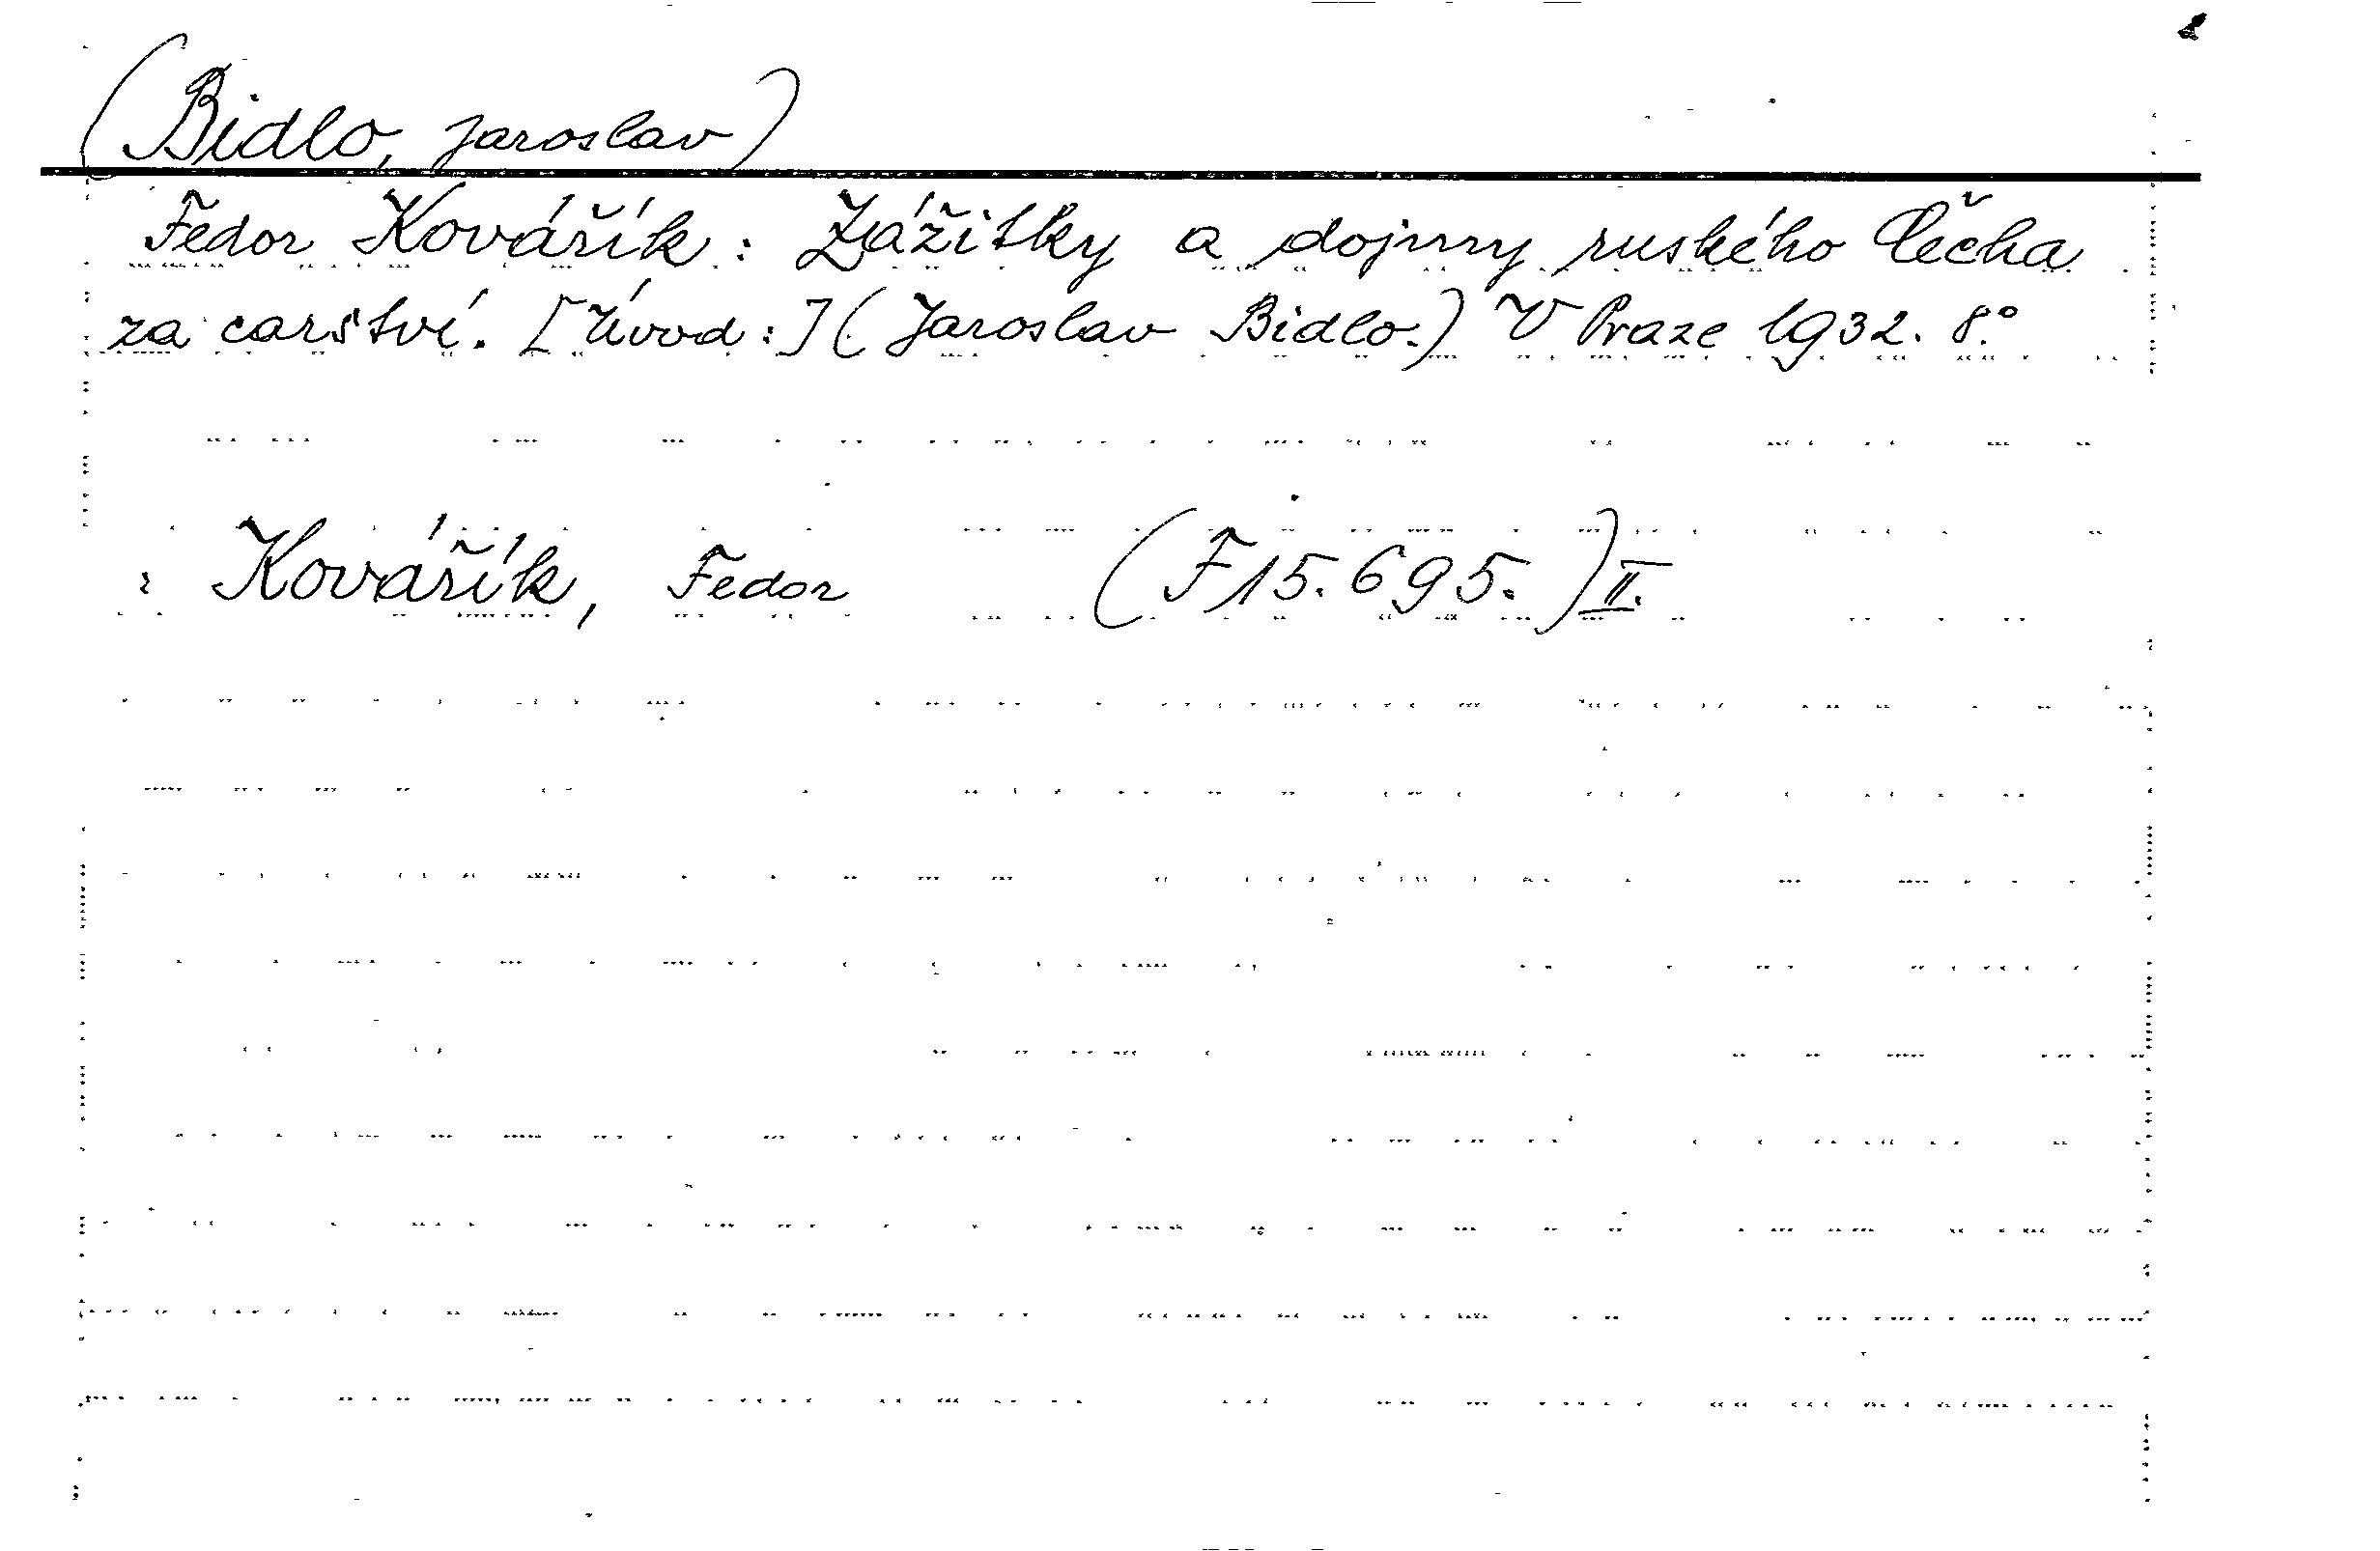 (Bidlo, Jaroslav)
Fedor Kovářík: Zážitky a dojmy ruského Čecha
za carství. [Úvod:] (Jaroslav Bidlo.) V Praze 1932. 8°.
: Kovářík, Fedor (F 15.695.) II.